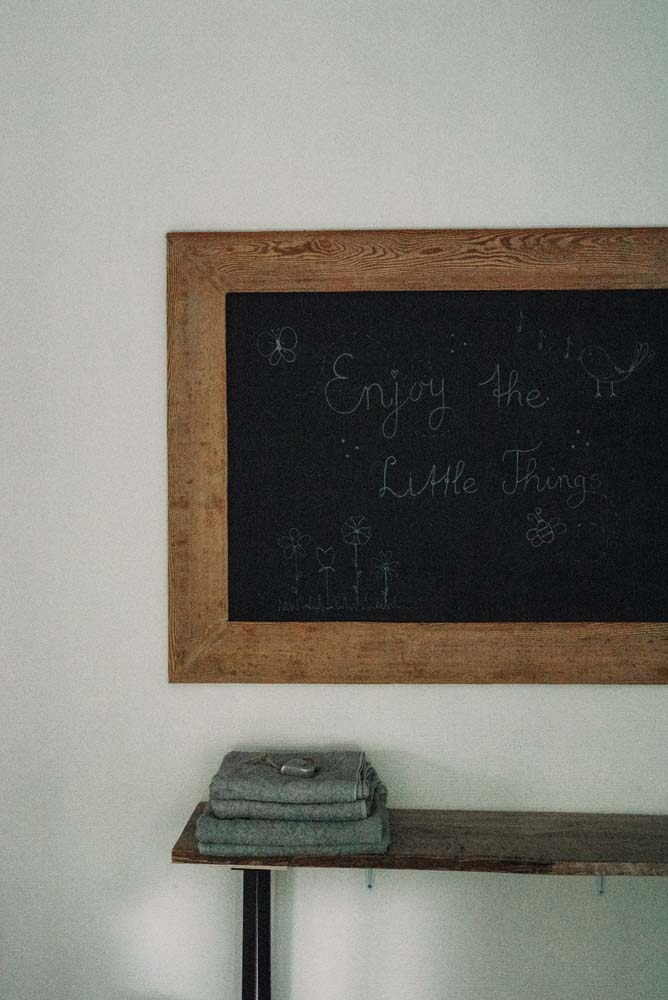 Enjoy the
Little Things